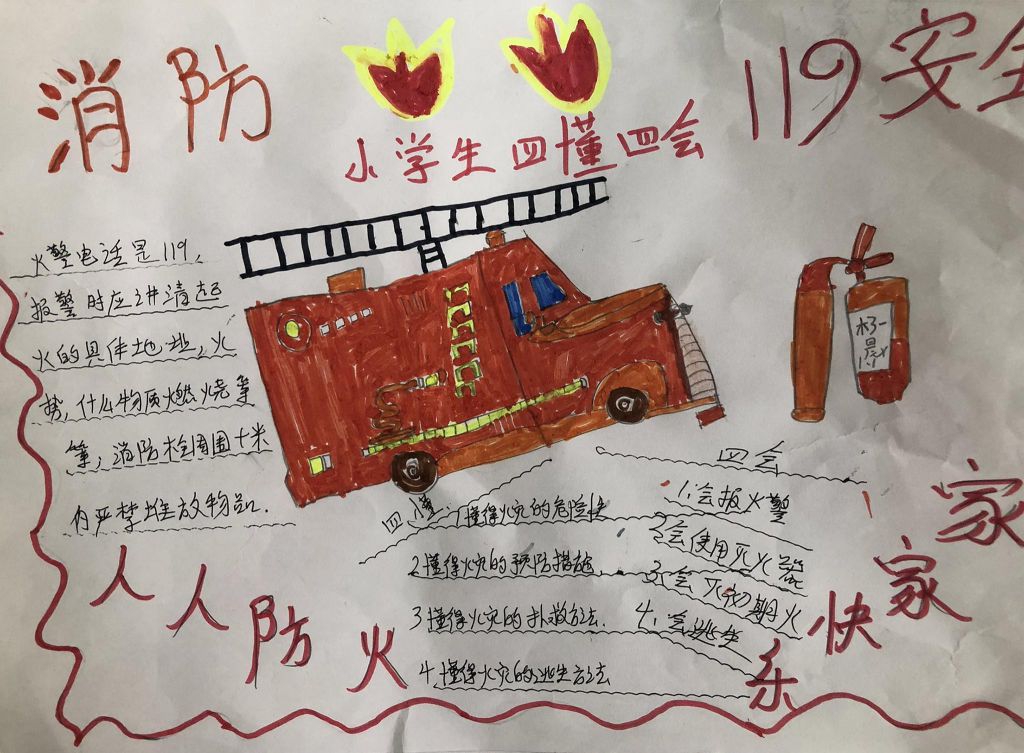 消防
119安全
小学生四懂四会
火警电话是119,
报警时应讲清起
火的具体地址,火
势,什么物质燃烧等
等,消防栓周围十米
内严禁堆放物品.
四懂
1懂得火灾的危险性
2懂得火灾的预防措施
3懂得火灾的扑救方法.
4,懂得火灾的逃生方法
四会
1:会报火警
2会使用灭火器
3:会灭初期火
4:会逃生
人人防火
家家快乐